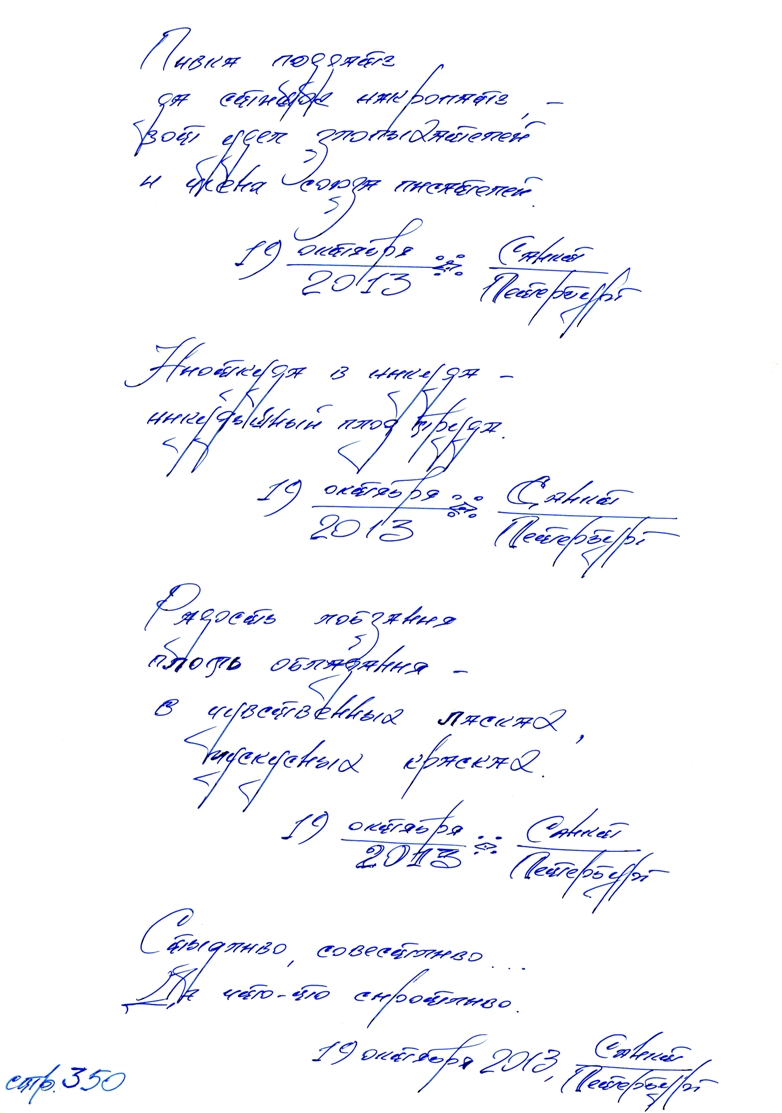 Пивка поддать
да стишок накропать, –
вот удел злопыхателей
и члена союза писателей.
19 октября Санкт
2013 Петербургъ
Ниоткуда в никуда –
никудышный плод труда.
19 октября Санкт
2013 Петербургъ
Радость лобзания
плоть обладания –
в чувственных ласках,
искусных красках.
19 октября Санкт
2013 Петербургъ
Стыдливо, совестливо...
Да что-то сиротливо.
19 октября 2013, Санкт
Петербургъ
стр. 350